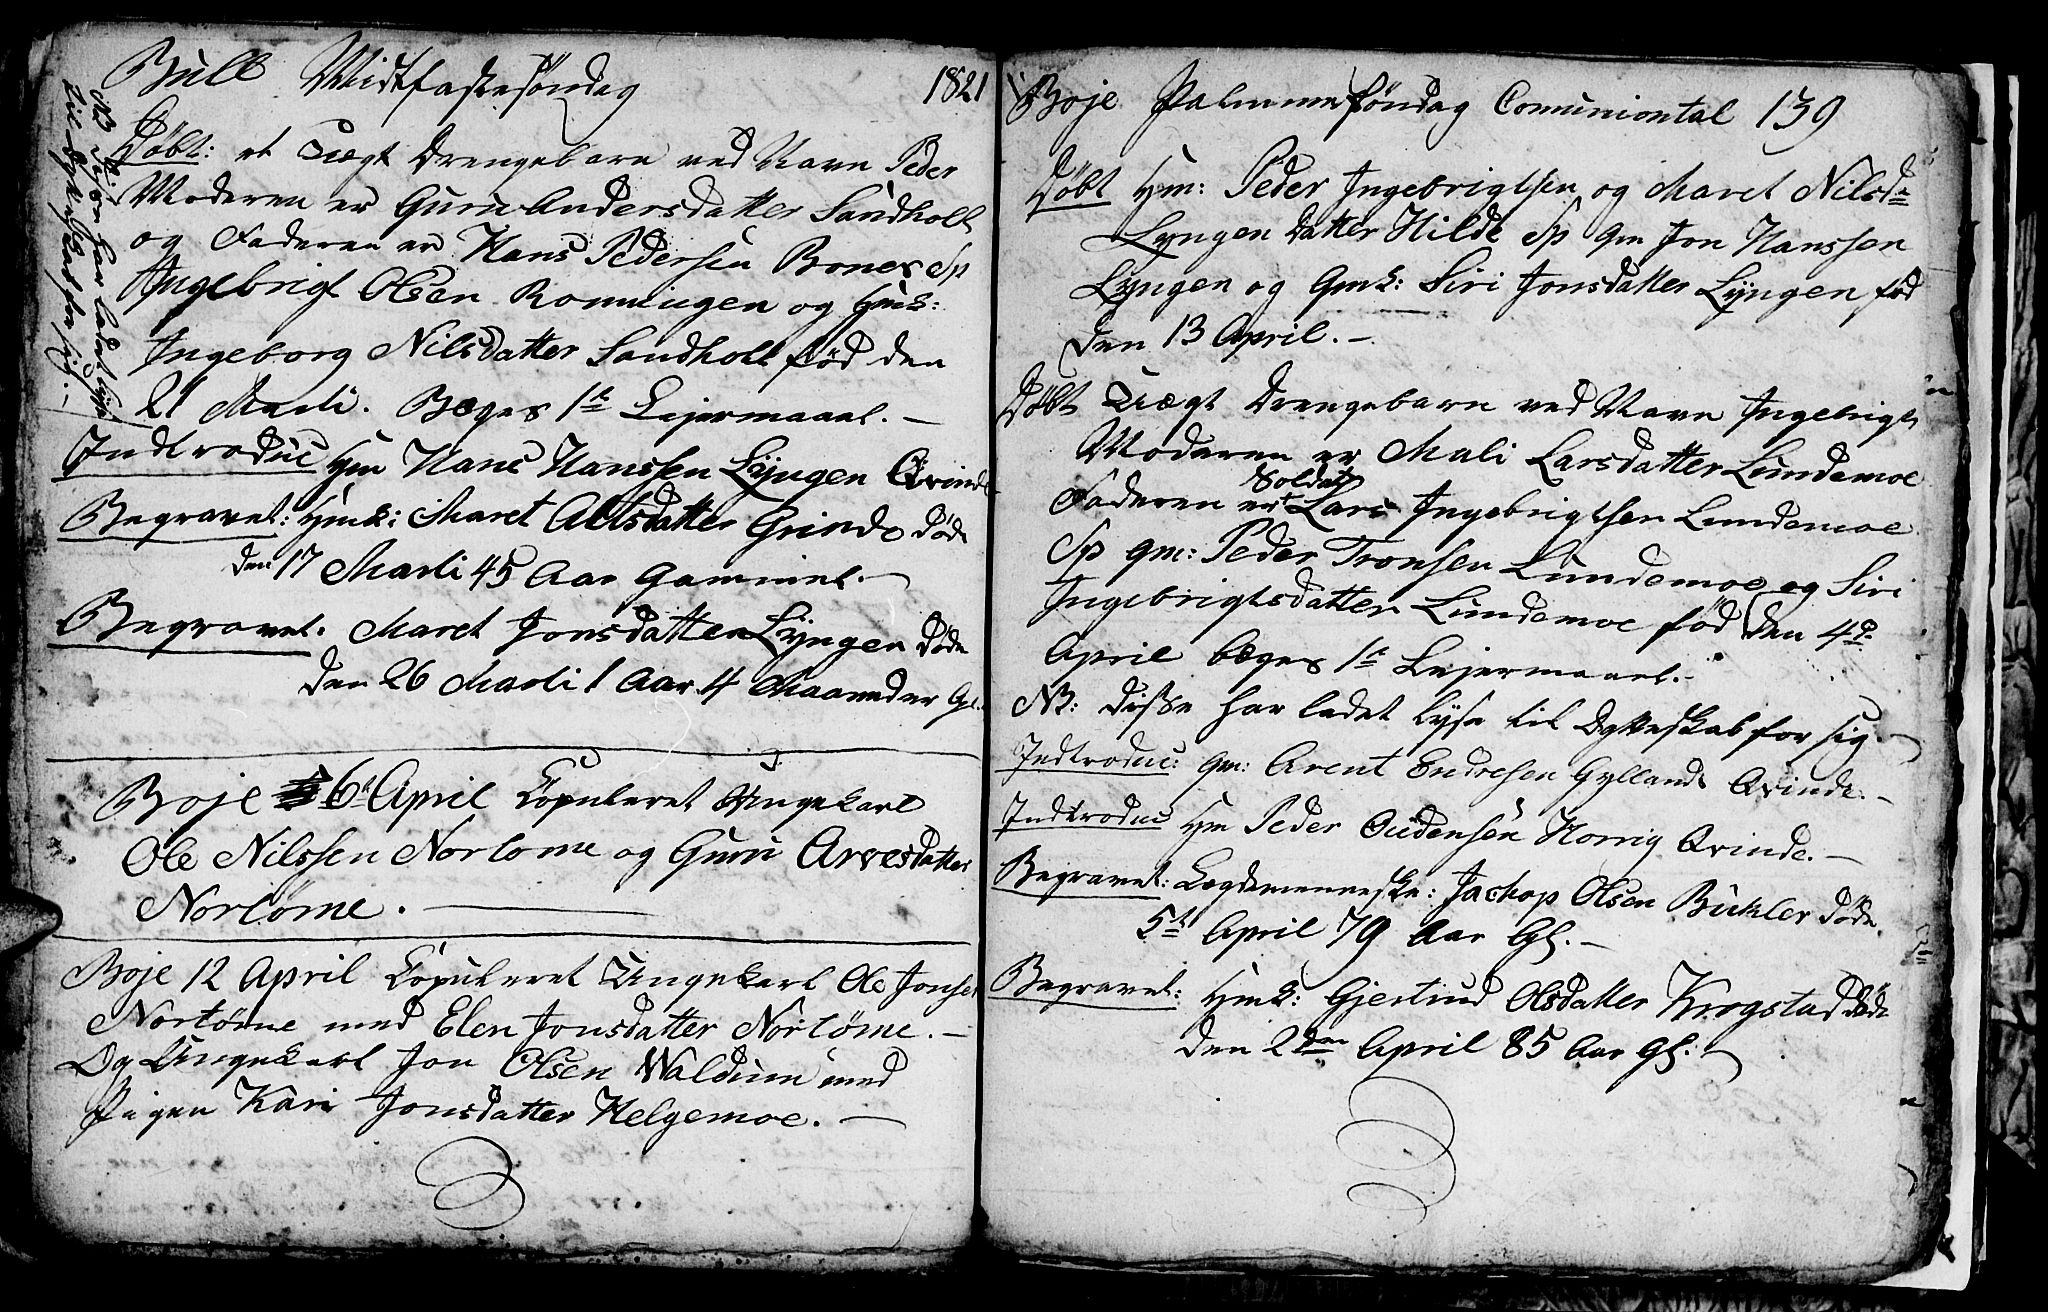 Bull Midtfastesøndag 1821
Døbt: et Uægt Drengebarn ved Navn Peder
Moderen er Guru Andersdatter Sandholt
og Faderen er Hans Pedersen Bones Sp
Ingebrigt Olsen Ronningen og Hmk:
Ingeborg Nilsdatter Sandholt fød den
21 Marti. Begges 1te Lejermaael. —
NB Disse har ladet lyse
til Egteskab for sig. —
Indtroduc Hm Hans Hanssen Lyngen Qvinde
Begravet: Hmk: Maret Allsdatter Grinde døde
den 17 Marti 45 Aar Gammel. —
Begravet. Maret Jonsdatter Lyngen døde
den 26 Marti 1 Aar 4 Maaneder Gl.
Boje 6t April Copuleret Ungekarl
Ole Nilssen Nortome og Guru Arvesdatter
Nortøme. —
Boje 12 April Copuleret Ungekarl Ole Jonsen
Nortøme med Elen Jonsdatter Nortøme. —
Og Ungekarl Jon Olsen Waldum med
Pigen Kari Jonsdatter Helgemoe. —
Boje Palmmesøndag Comuniontal 139
Døbt Hm: Peder Ingebrigtsen og Maret Nilsdr
Lyngen datter Hilde Sp gm Jon Hanssen
Lyngen og Gmk: Siri Jonsdatter Lyngen fød
den 13 April. —
Døbt Uægt Drengebarn ved Navn Ingebrigt
Moderen er Mali Larsdatter Lundemoe
Faderen er Soldat Lars Ingebrigtsen Lundemoe
Sp gm: Peder Tronsen Lundemoe og Siri
Ingebrigtsdatter Lundemoe fød den 4de
April begges 1te Lejermaael. —
NB: disse har ladet lyse til Egteskab for sig. —
Indtroduc: gm: Arent Endresen Gyllands Qvinde. —
Indtroduc Hm Peder Oudensen Horrig Qvinde. —
Begravet: Lægdemenneske: Jachop Olsen Buhler døde
5t April 79 Aar Gl. —
Begravet: Hmk: Gjertrud Olsdatter Krogstad døde
den 2den April 85 Aar Gl. —